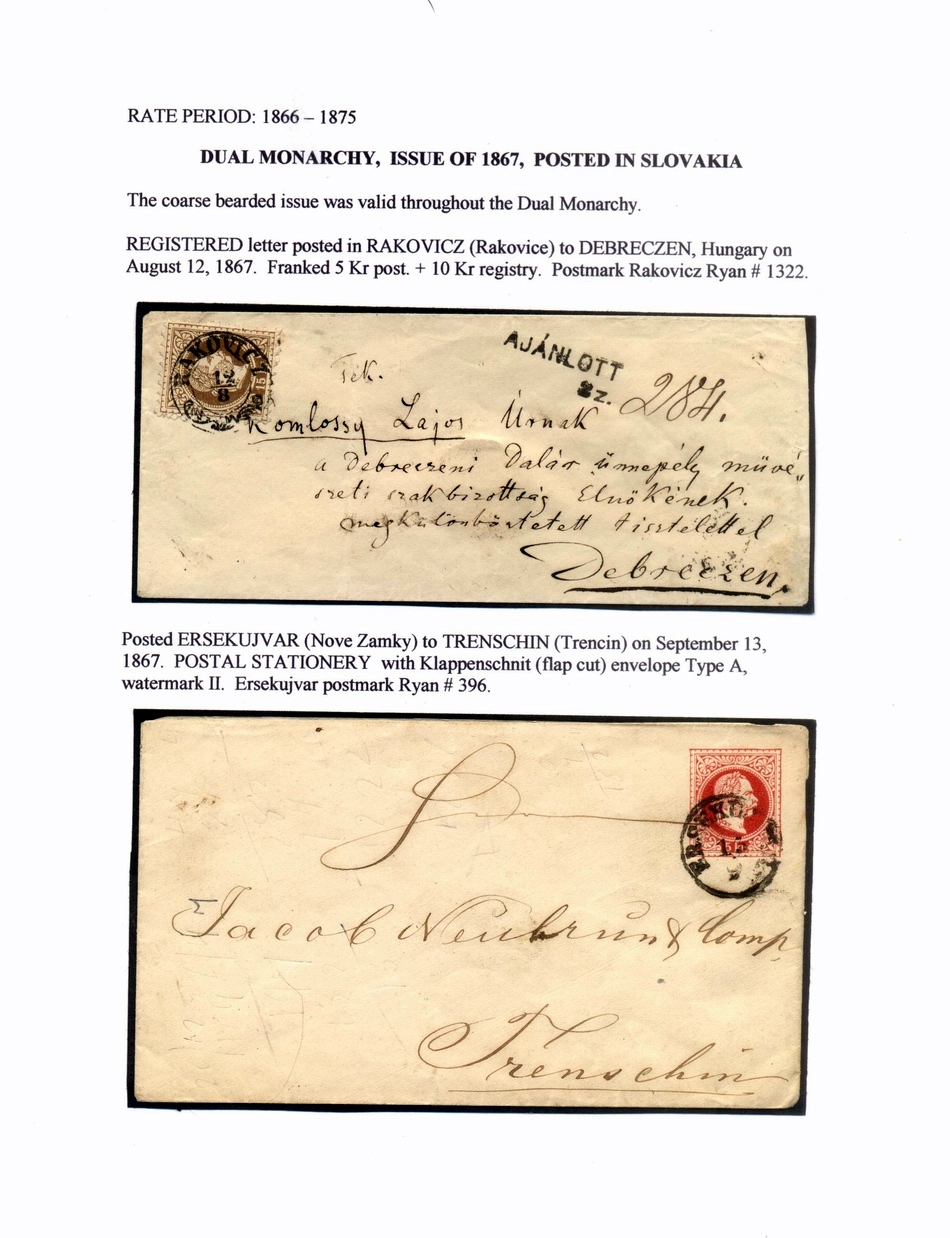 RATE PERIOD: 1866 – 1875
DUAL MONARCHY, ISSUE OF 1867, POSTED IN SLOVAKIA
The coarse bearded issue was valid throughout the Dual Monarchy.
REGISTERED letter posted in RAKOVICZ (Rakovice) to DEBRECZEN, Hungary on
August 12, 1867. Franked 5 Kr post. + 10 Kr registry. Postmark Rakovicz Ryan # 1322.
RAKOVICZ
12
8
15
AJÁNLOTT
Sz. 284.
Tek.
Komlossy Lajos Úrnak
a Debreczeni Dalár ünnepély művé„
szeti szakbizottság Elnökének.
megkülönböztetett tisztelettel
Debreczen,
Posted ERSEKUJVAR (Nove Zamky) to TRENSCHIN (Trencin) on September 13,
1867. POSTAL STATIONERY with Klappenschnit (flap cut) envelope Type A,
watermark II. Ersekujvar postmark Ryan # 396.
Jacob Neubrun & Comp.
Trenschin